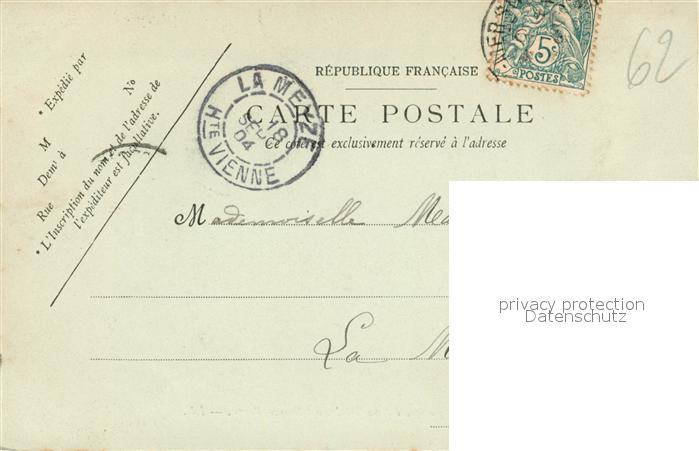 62
5c
POSTES
RÉPUBLIQUE FRANÇAISE
CARTE POSTALE
Ce côté est exclusivement réservé à l'adresse
LA MEYZE
18
SEPT
04
HTE VIENNE
* Expédié par
No
M
Demt à
Rue
* L'Inscription du nom et de l'adresse de
l'expéditeur est facultative.
Mademoiselle
La M
privacy protection
Datenschutz